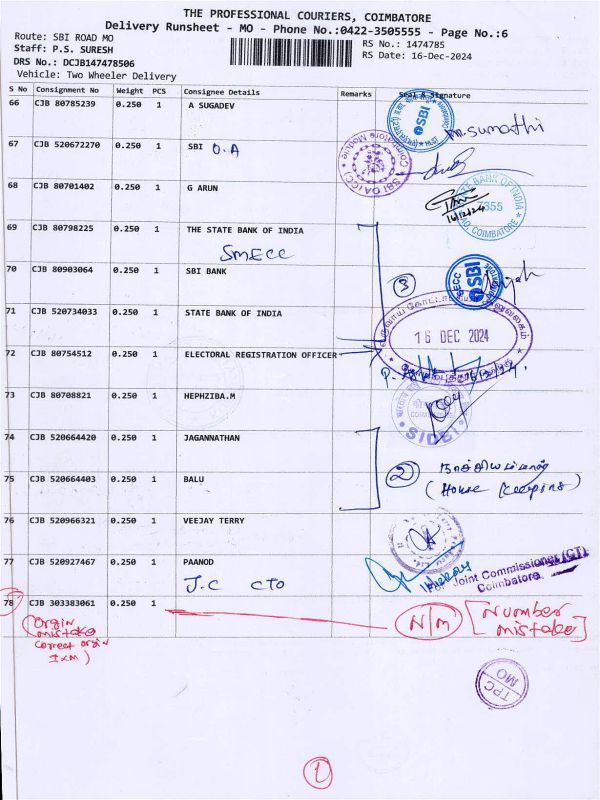 THE PROFESSIONAL COURIERS, COIMBATORE
Delivery Runsheet - MO - Phone No.:0422-3505555 - Page No.:6
Route: SBI ROAD MO
Staff: P.S. SURESH
DRS No.: DCJB147478506
Vehicle: Two Wheeler Delivery
RS No.: 1474785
RS Date: 16-Dec-2024
S No Consignment No Weight PCS Consignee Details Remarks Seal & Signature
66 CJB 80785239 0.250 1 A SUGADEV
SBI
M. Sumathi
67 CJB 520672270 0.250 1 SBI O.A
Coimbatore Module
SBI OA (CC)
68 CJB 80701402 0.250 1 G ARUN
BANK OF INDIA
7355
COIMBATORE
16/12/24
69 CJB 80798225 0.250 1 THE STATE BANK OF INDIA
SMECC
70 CJB 80903064 0.250 1 SBI BANK
3
SBI
71 CJB 520734033 0.250 1 STATE BANK OF INDIA
16 DEC 2024
72 CJB 80754512 0.250 1 ELECTORAL REGISTRATION OFFICER
73 CJB 80708821 0.250 1 HEPHZIBA.M
COIMBATORE
SIDBI
74 CJB 520664420 0.250 1 JAGANNATHAN
2
75 CJB 520664403 0.250 1 BALU
(House Keeping)
76 CJB 520966321 0.250 1 VEEJAY TERRY
77 CJB 520927467 0.250 1 PAANOD
J.C CTO
For Joint Commissioner (CT)
Coimbatore
78 CJB 303383061 0.250 1
N/M [Number mistake]
(Orgin
mistake
correct orgin
IXM)
TPC
MO
1